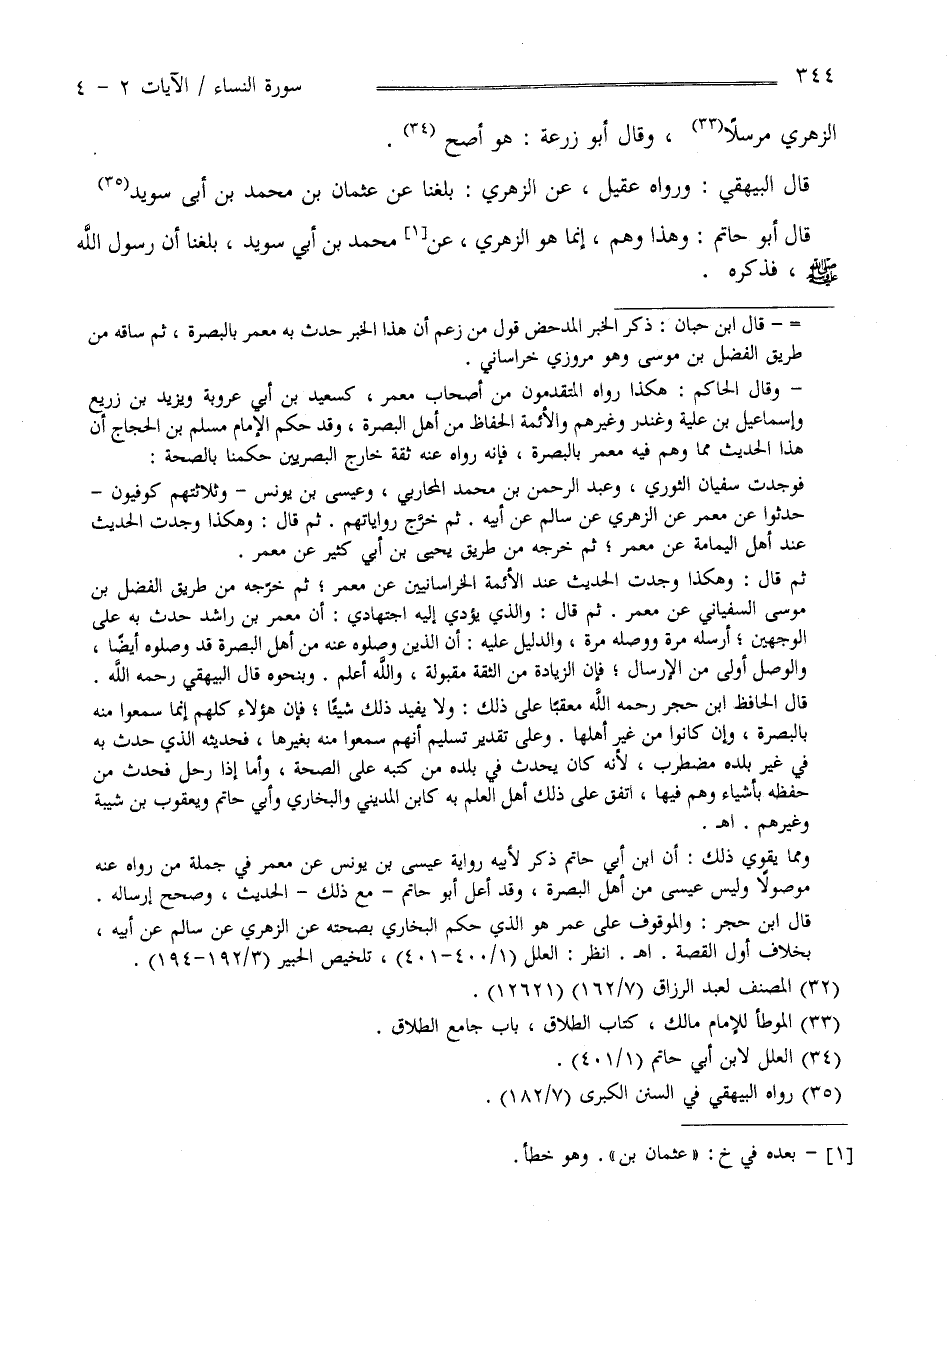 ٣٤٤
سورة النساء / الآيات ٢ - ٤
الزهري مرسلًا(٣٣) ، وقال أبو زرعة : هو أصح (٣٤) .
قال البيهقي : ورواه عقيل ، عن الزهري : بلغنا عن عثمان بن محمد بن أبى سويد(٣٥)
قال أبو حاتم : وهذا وهم ، إنما هو الزهري ، عن[١] محمد بن أبي سويد ، بلغنا أن رسول اللَّه
ﷺ ، فذكره .
= - قال ابن حبان : ذكر الخبر المدحض قول من زعم أن هذا الخبر حدث به معمر بالبصرة ، ثم ساقه من
طريق الفضل بن موسى وهو مروزي خراساني .
- وقال الحاكم : هكذا رواه المتقدمون من أصحاب معمر ، كسعيد بن أبي عروبة ويزيد بن زريع
وإسماعيل بن علية وغندر وغيرهم والأئمة الحفاظ من أهل البصرة ، وقد حكم الإمام مسلم بن الحجاج أن
هذا الحديث مما وهم فيه معمر بالبصرة ، فإنه رواه عنه ثقة خارج البصريين حكمنا بالصحة :
فوجدت سفيان الثوري ، وعبد الرحمن بن محمد المحاربي ، وعيسى بن يونس - وثلاثتهم كوفيون -
حدثوا عن معمر عن الزهري عن سالم عن أبيه . ثم خرَّج رواياتهم . ثم قال : وهكذا وجدت الحديث
عند أهل اليمامة عن معمر ؛ ثم خرجه من طريق يحيى بن أبي كثير عن معمر .
ثم قال : وهكذا وجدت الحديث عند الأئمة الخراسانيين عن معمر ؛ ثم خرّجه من طريق الفضل بن
موسى السفياني عن معمر . ثم قال : والذي يؤدي إليه اجتهادي : أن معمر بن راشد حدث به على
الوجهين ؛ أرسله مرة ووصله مرة ، والدليل عليه : أن الذين وصلوه عنه من أهل البصرة قد وصلوه أيضًا ،
والوصل أولى من الإرسال ؛ فإن الزيادة من الثقة مقبولة ، واللَّه أعلم . وبنحوه قال البيهقي رحمه اللَّه .
قال الحافظ ابن حجر رحمه اللَّه معقبًا على ذلك : ولا يفيد ذلك شيئًا ؛ فإن هؤلاء كلهم إنما سمعوا منه
بالبصرة ، وإن كانوا من غير أهلها . وعلى تقدير تسليم أنهم سمعوا منه بغيرها ، فحديثه الذي حدث به
في غير بلده مضطرب ، لأنه كان يحدث في بلده من كتبه على الصحة ، وأما إذا رحل فحدث من
حفظه بأشياء وهم فيها ، اتفق على ذلك أهل العلم به كابن المديني والبخاري وأبي حاتم ويعقوب بن شيبة
وغيرهم . اهـ .
ومما يقوي ذلك : أن ابن أبي حاتم ذكر لأبيه رواية عيسى بن يونس عن معمر في جملة من رواه عنه
موصولًا وليس عيسى من أهل البصرة ، وقد أعل أبو حاتم - مع ذلك - الحديث ، وصحح إرساله .
قال ابن حجر : والموقوف على عمر هو الذي حكم البخاري بصحته عن الزهري عن سالم عن أبيه ،
بخلاف أول القصة . اهـ . انظر : العلل (٤٠٠/١-٤٠١) ، تلخيص الحبير (١٩٢/٣-١٩٤) .
(٣٢) المصنف لعبد الرزاق (١٦٢/٧) (١٢٦٢١) .
(٣٣) الموطأ للإمام مالك ، كتاب الطلاق ، باب جامع الطلاق .
(٣٤) العلل لابن أبي حاتم (٤٠١/١) .
(٣٥) رواه البيهقي في السنن الكبرى (١٨٢/٧) .
[١] - بعده في خ : «عثمان بن» . وهو خطأ .